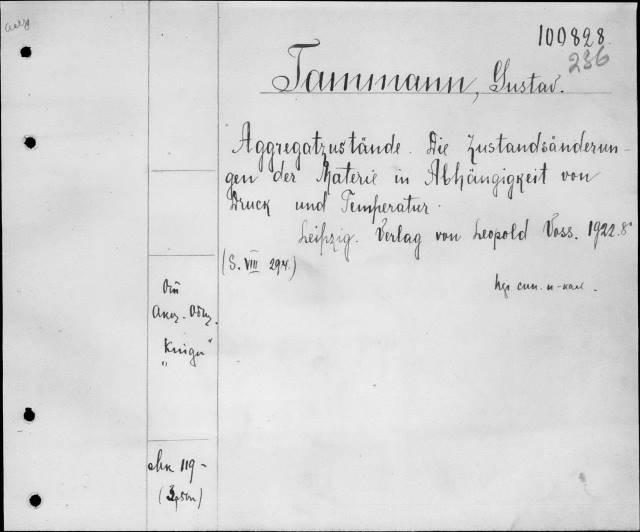 100828
236
Tammann, Gustav.
Aggregatzustände. Die Zustandsänderun-
gen der Materie in Abhängigkeit von
Druck und Temperatur.
Leipzig. Verlag von Leopold Voss. 1922. 8°
(S. VIII 294.)
"Kniga"
119-